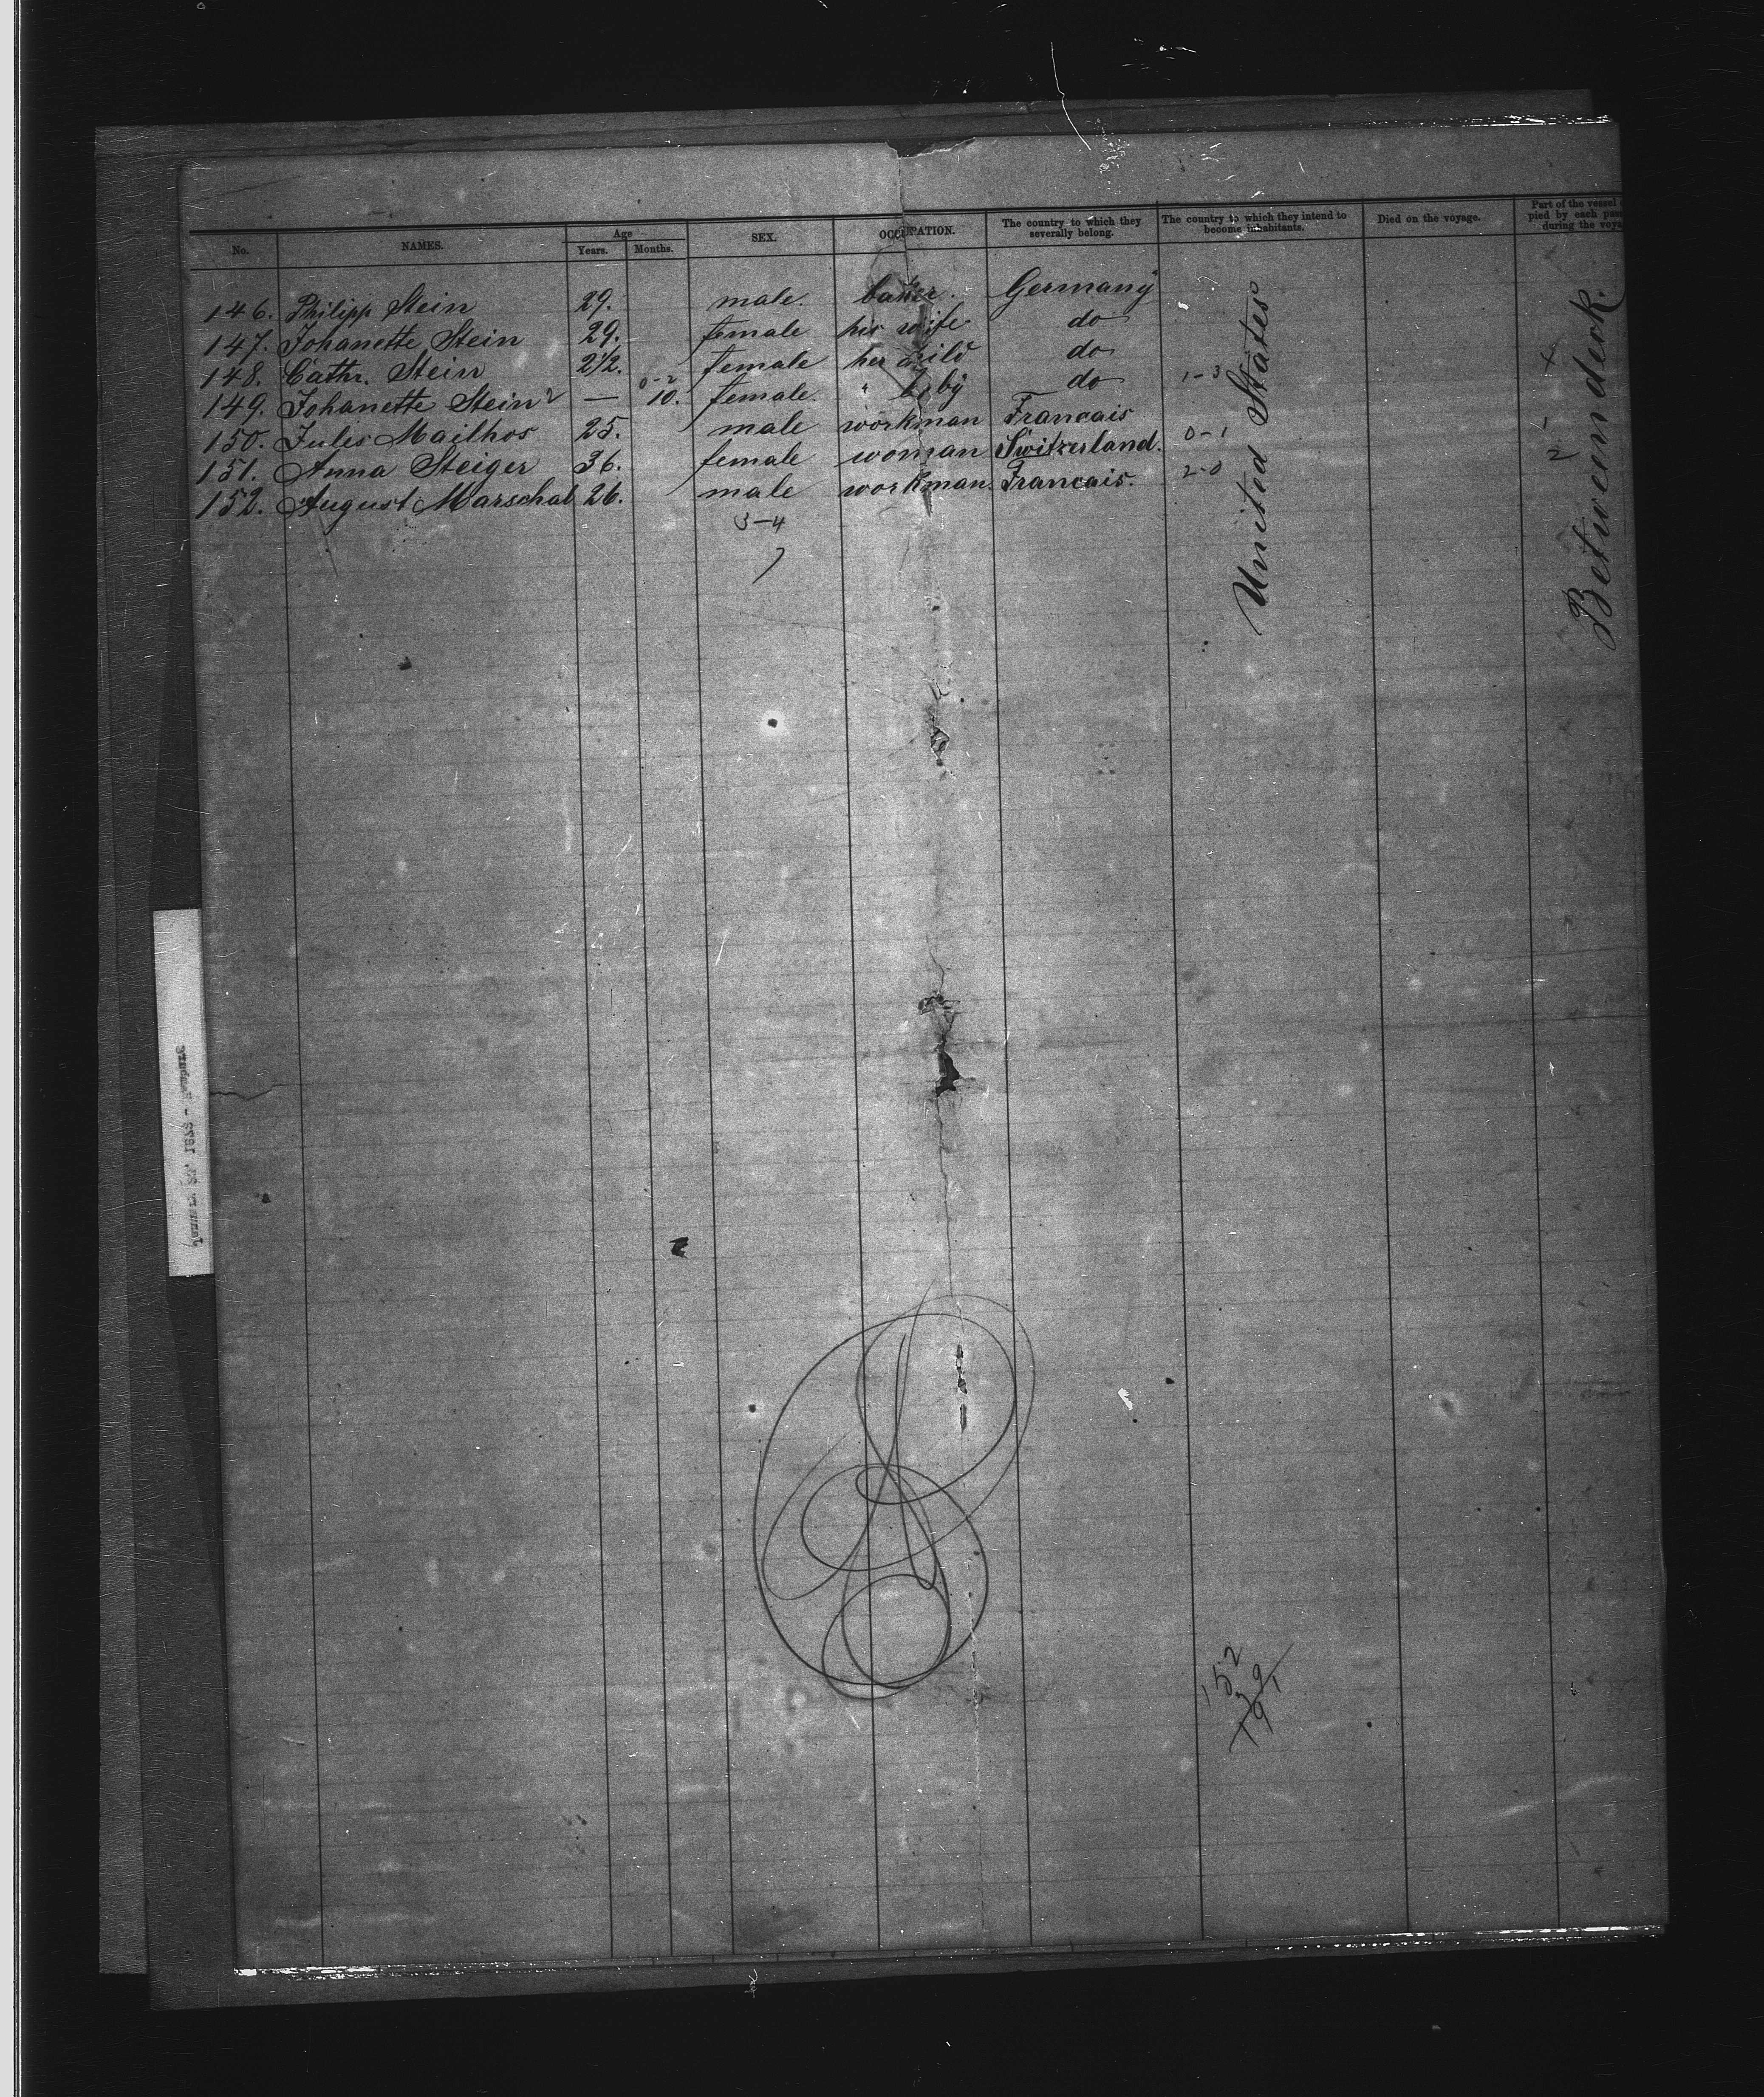 No. NAMES. Age Years. Months. SEX. OCCUPATION. The country to which they severally belong. The country to which they intend to become inhabitants. Died on the voyage. Part of the vessel pied by each during the
146. Philipp Stein 29. male. baker. Germany
147. Johanette Stein 29. female his wife do
148. Cathr. Stein 2 1/2. female her child do
149. Johanette Stein — 0-2 10. female. " baby do 1-3
150. Jules Mailhos 25. male workman Francais
151. Anna Steiger 36. female woman Switzerland. 0-1
152. August Marschal 26. male workman. Francais. 2-0
United States
Betweendeck.
3-4
7
152
39
191